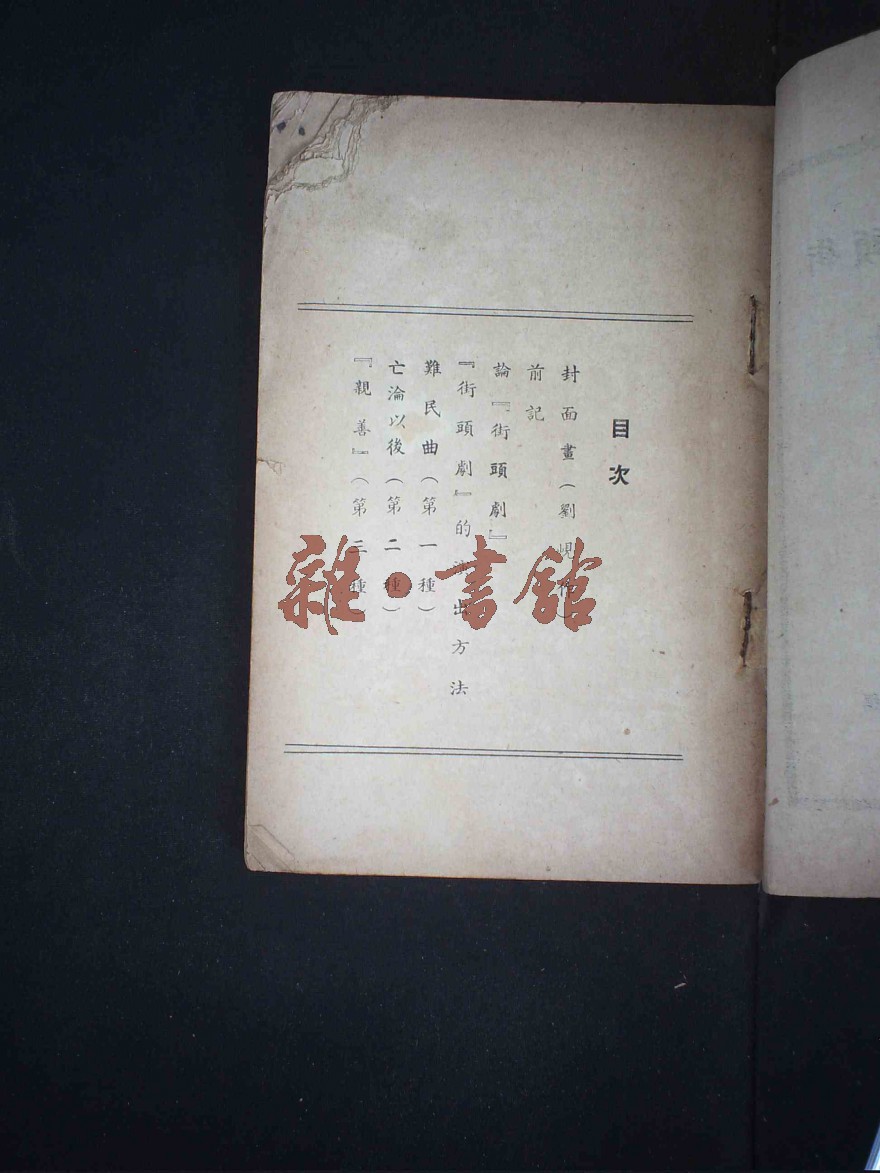 目次
封面畫（劉峴作）
前記
論『街頭劇』
『街頭劇』的演出方法
難民曲（第一種）
亡淪以後（第二種）
『親善』（第三種）
雜·書館